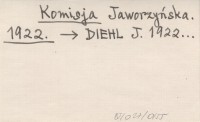 Komisja Jaworzyńska.
1922. → DIEHL J. 1922...